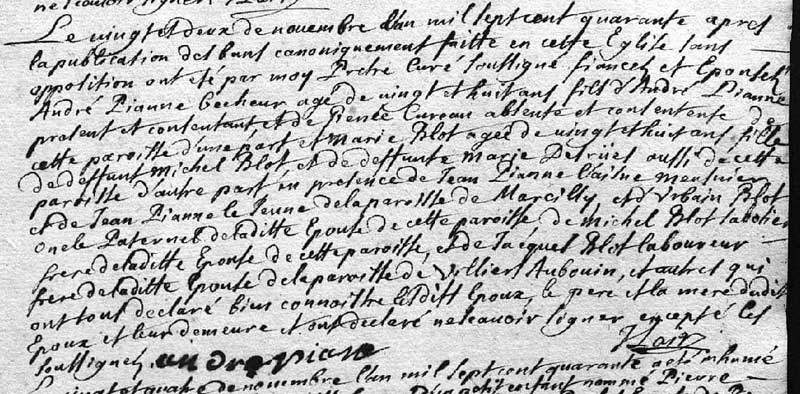 ne scavoir signer
Le vingt et deux de novembre l'an mil sept cent quarante apres
la publication des bans canoniquement faitte en cette Eglise sans
opposition ont eté par moy Prêtre Curé soussigné fiancés et Epousés
André Pianne becheur agé de vingt et huit ans fils d'André Pianne
present et consentant et de Renée Cureau absente et consentente de
cette paroisse d'une part et Marie Blot agée de vingt et huit ans fille
de deffunt michel Blot et de deffunte marie Detrües aussi de cette
paroisse d'autre part en presence de Jean Pianne l'aisne meusnier
et de Jean Pianne le Jeune de la paroisse de Marcilly, et d'Urbain Blot
oncle Paternel de laditte Epouse de cette paroisse de Michel Blot sabotier
frere de laditte Epouse de cette paroisse, et de Jacques Blot laboureur
frere de laditte Epouse de la paroisse de Villiers Aubouin, et autres qui
ont tous declaré bien connoistre lesdits Epoux, le pere et la mere dudit
Epoux et leur demeure et ont declaré ne scavoir signer excepté les
soussignés. andre piane
Le vingt et quatre de novembre l'an mil sept cent quarante a eté inhumé
d'un petit enfant nommé Pierre